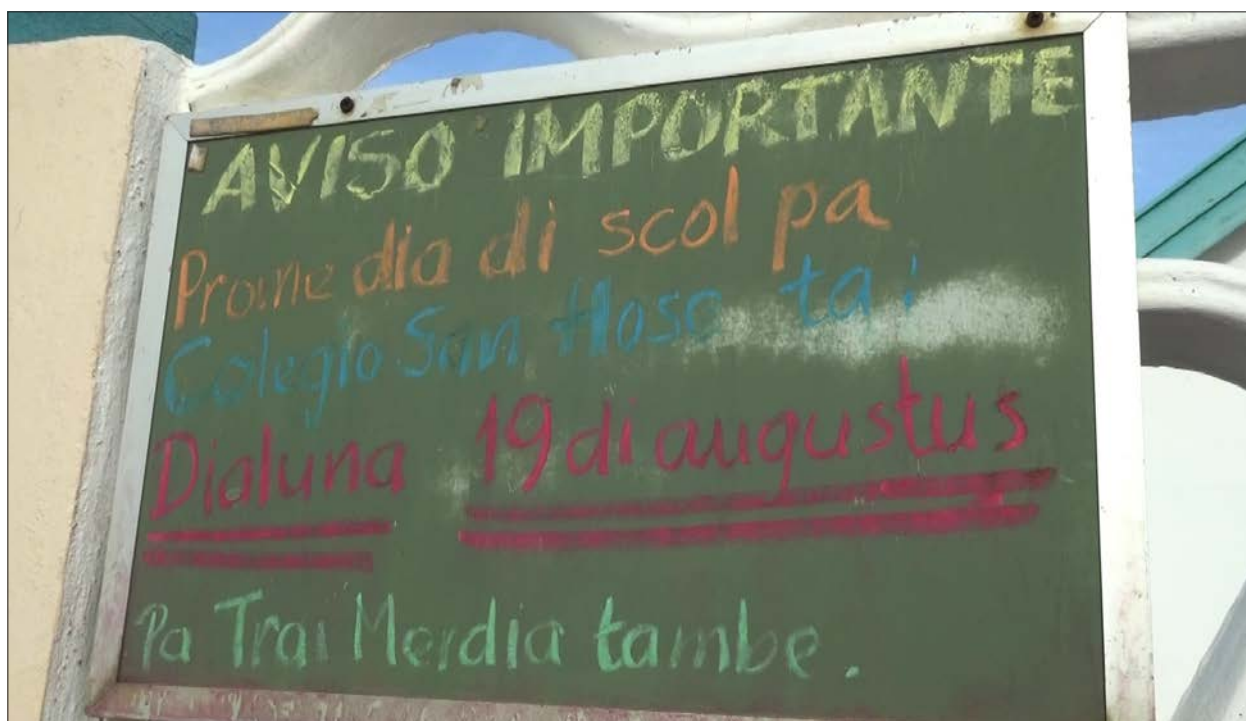 AVISO IMPORTANTE
Prome dia di scol pa
Colegio San Hose ta:
Dialuna 19 di augustus
Pa Trai Merdia tambe.